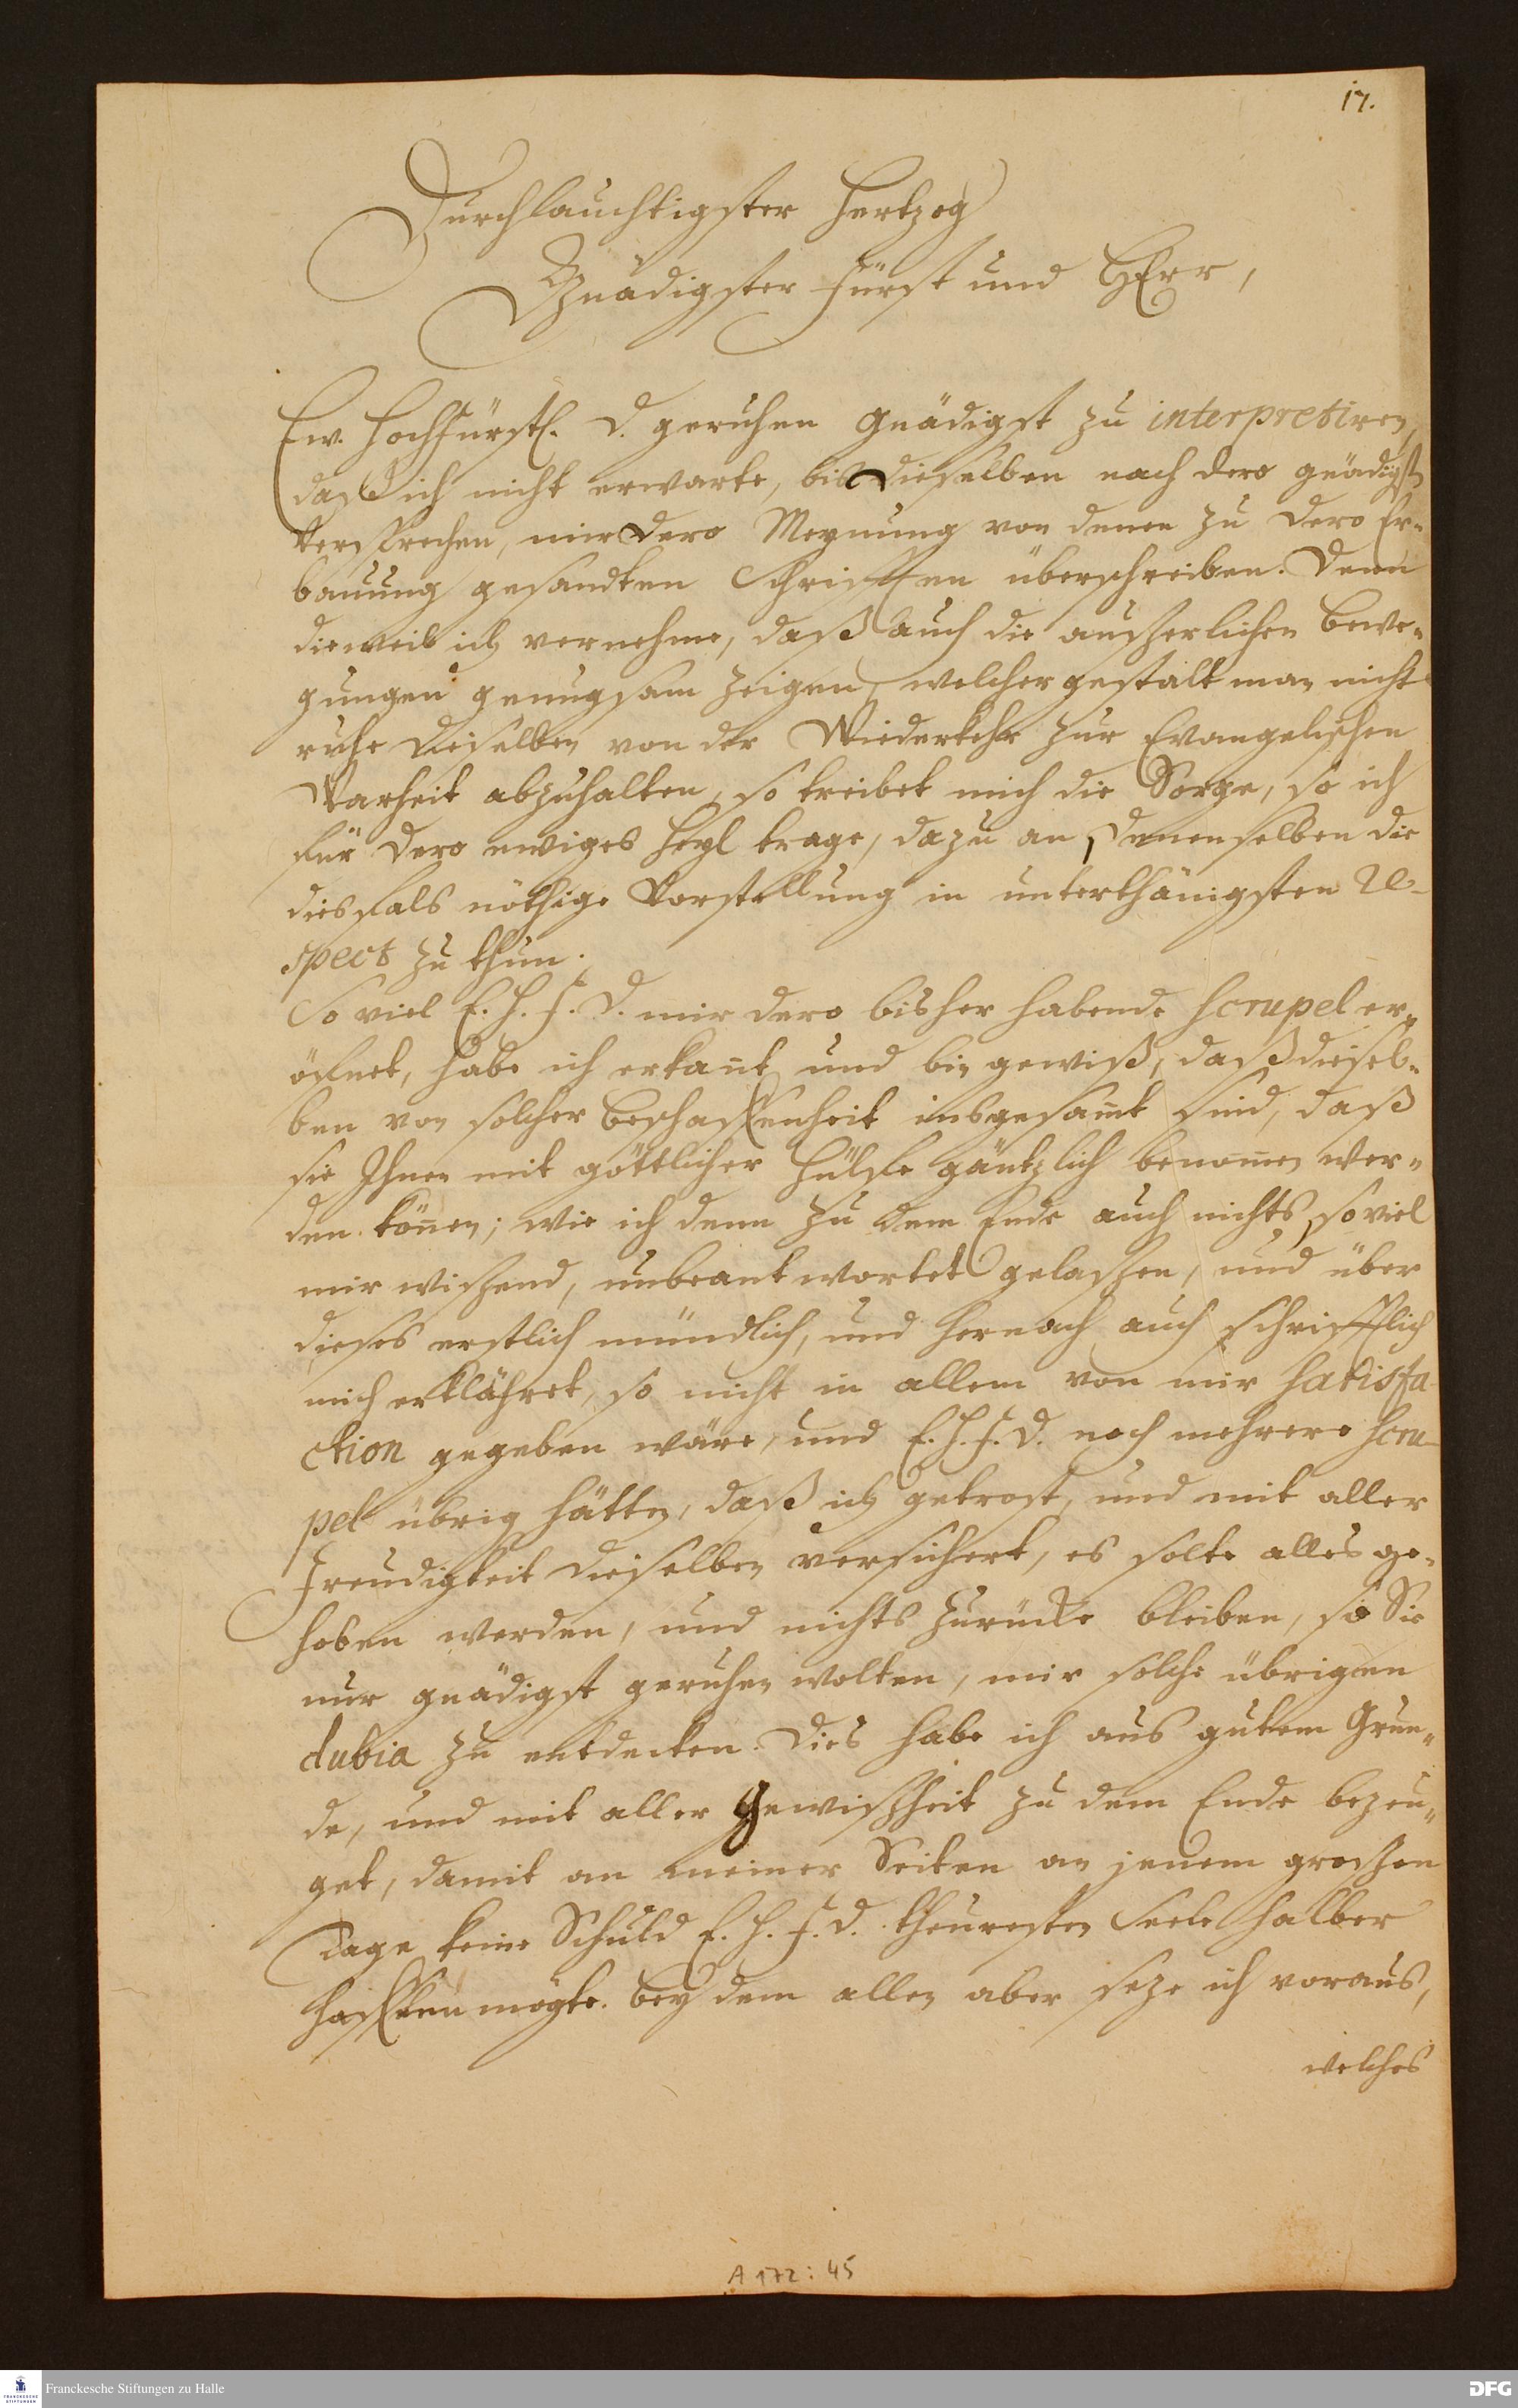 17.
Durchlauchtigster Hertzog
Gnädigster Fürst und HErr,
Ew. Hochfürstl. D. geruhen gnädigst zu interpretiren,
daß ich nicht erwarte, bis Dieselben nach dero gnädigst
Versprechen, mir dero Meynung von denen zu dero Er-
bauung gesandten Schrifften überschreiben. Denn
dieweil ich vernehme, daß auch die äusserlichen Bewe-
gungen genugsam zeigen, welcher gestalt man nicht
ruhe dieselben von der Wiederkehr zur Evangelischen
Warheit abzuhalten, so treibet mich die Sorge, so ich
für dero ewiges Heyl trage, dazu an, Denenselben die
diesfals nöthige Vorstellung in unterthänigsten Re-
spect zu thun.
So viel E. H. F. D. mir dero bisher habende scrupel er-
öfnet, habe ich erkañt und bin gewiß, daß diesel-
ben von solcher Beschaffenheit insgesam̃t sind, daß
sie Ihnen mit göttlicher Hülfe gäntzlich benom̃en wer-
den köñen; wie ich denn zu dem Ende auch nichts, so viel
mir wissend, unbeantwortet gelassen, und über
dieses erstlich mündlich, und hernach auch schrifftlich
mich erklähret, so nicht in allem von mir satisfa-
ction gegeben wäre, und E. H. F. D. noch mehrere scru-
pel übrig hätten, daß ich getrost, und mit aller
Freudigkeit dieselben versichert, es solte alles ge-
hoben werden, und nichts zurücke bleiben, so Sie
nur gnädigst geruhen wolten, mir solche übrigen
dubia zu entdecken. Dies habe ich aus gutem Grun-
de, und mit aller Gewißheit zu dem Ende bezeu-
get, damit an meiner Seiten an jenem grossen
Tage keine Schuld E. H. F. D. theuresten Seele halber
hafften mögte. Bey dem allen aber seze ich voraus,
welches
A 172 : 45
Franckesche Stiftungen zu Halle
FRANCKESCHE
STIFTUNGEN
DFG